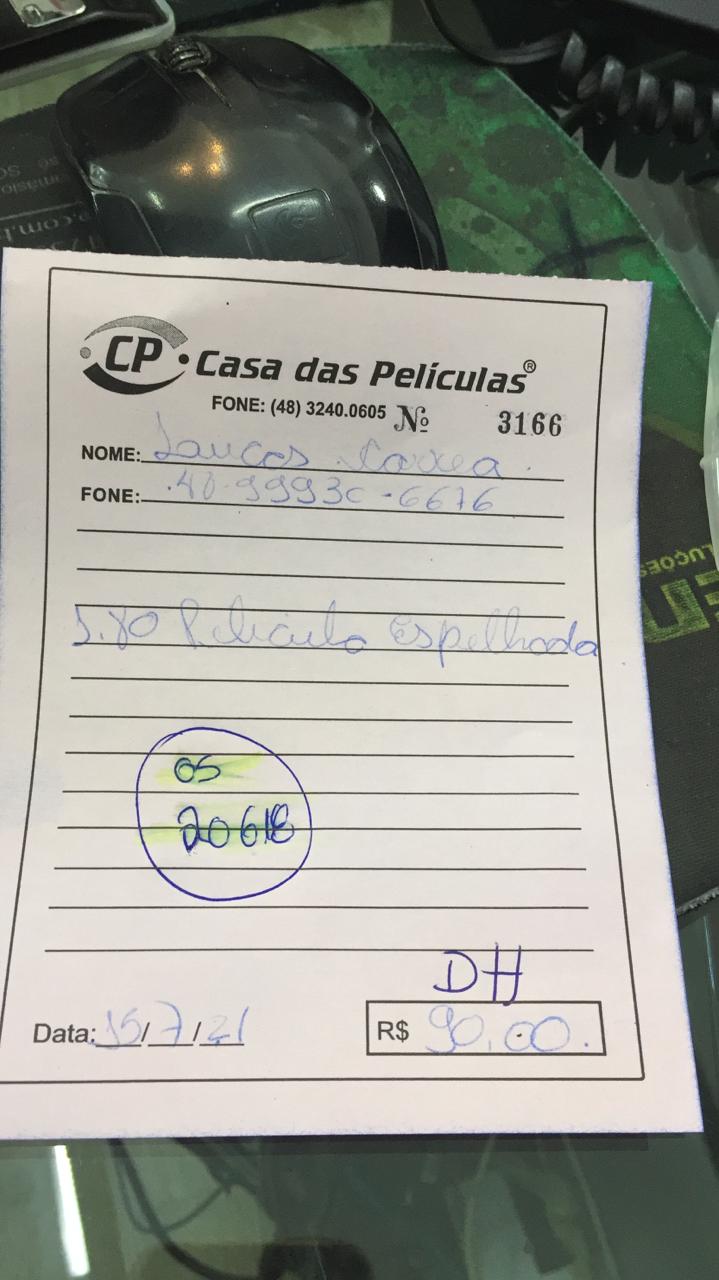 CP • Casa das Películas®
FONE: (48) 3240.0605 Nº 3166
NOME:
FONE: 48-9993
1.80 Pelicula Espelhada
OS
20618
DH
Data: 15/7/21 R$ 90,00.